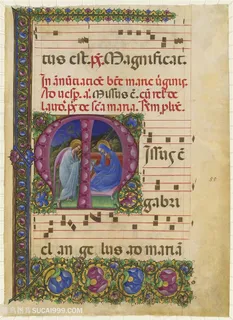 tus est. p̄s. Magnificat.
In annūtiatiōe bt̄e marie v̄ginis.
Ad vesp. a. Missus ē. cū rel. de
laud. ps. de sc̄a maria. Rm̄ plix̄.
Missus ē
gabri
el an ge lus ad mariā
SUCAI999.COM